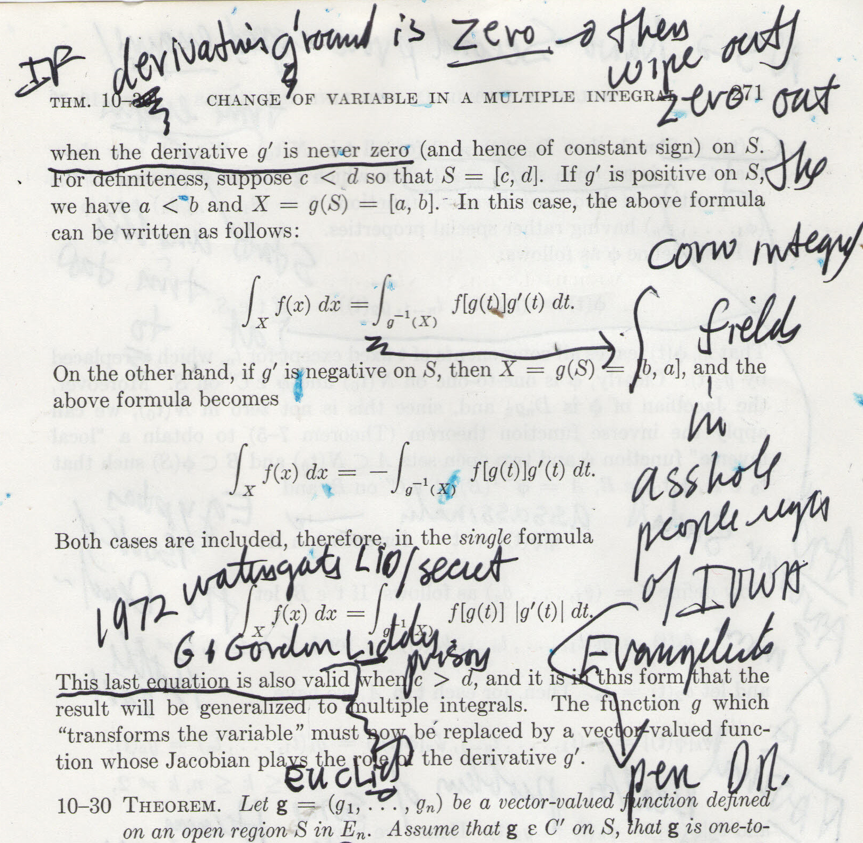 IF derivating g'round is zero → then
wipe outs
zero out
the
THM. 10–30 CHANGE OF VARIABLE IN A MULTIPLE INTEGRAL 271
when the derivative g′ is never zero (and hence of constant sign) on S.
For definiteness, suppose c < d so that S = [c, d]. If g′ is positive on S,
we have a < b and X = g(S) = [a, b]. In this case, the above formula
can be written as follows:
corn integral
∫_X f(x) dx = ∫_{g⁻¹(X)} f[g(t)]g′(t) dt.
fields
On the other hand, if g′ is negative on S, then X = g(S) = [b, a], and the
above formula becomes
in
∫_X f(x) dx = −∫_{g⁻¹(X)} f[g(t)]g′(t) dt.
asshole
people
of IOWA
Both cases are included, therefore, in the single formula
1972 watergate LID/secret
∫_X f(x) dx = ∫_{g⁻¹(X)} f[g(t)] |g′(t)| dt.
G. Gordon Liddy prison
Evangelists
This last equation is also valid when c > d, and it is in this form that the
result will be generalized to multiple integrals. The function g which
“transforms the variable” must now be replaced by a vector-valued func-
tion whose Jacobian plays the role of the derivative g′.
EUCLID
pen DR.
10–30 THEOREM. Let g = (g₁, . . . , gₙ) be a vector-valued function defined
on an open region S in Eₙ. Assume that g ε C′ on S, that g is one-to-